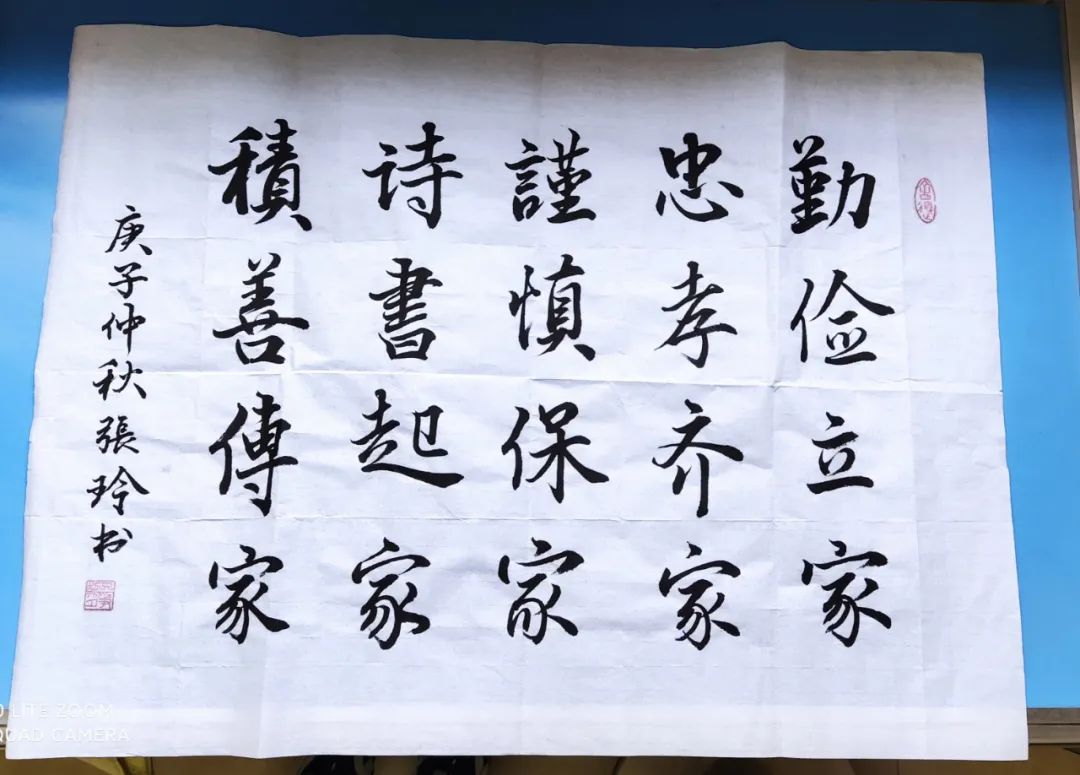 勤俭立家
忠孝齐家
謹慎保家
诗書起家
積善傳家
庚子仲秋張玲书
LITE ZOOM
QUAD CAMERA